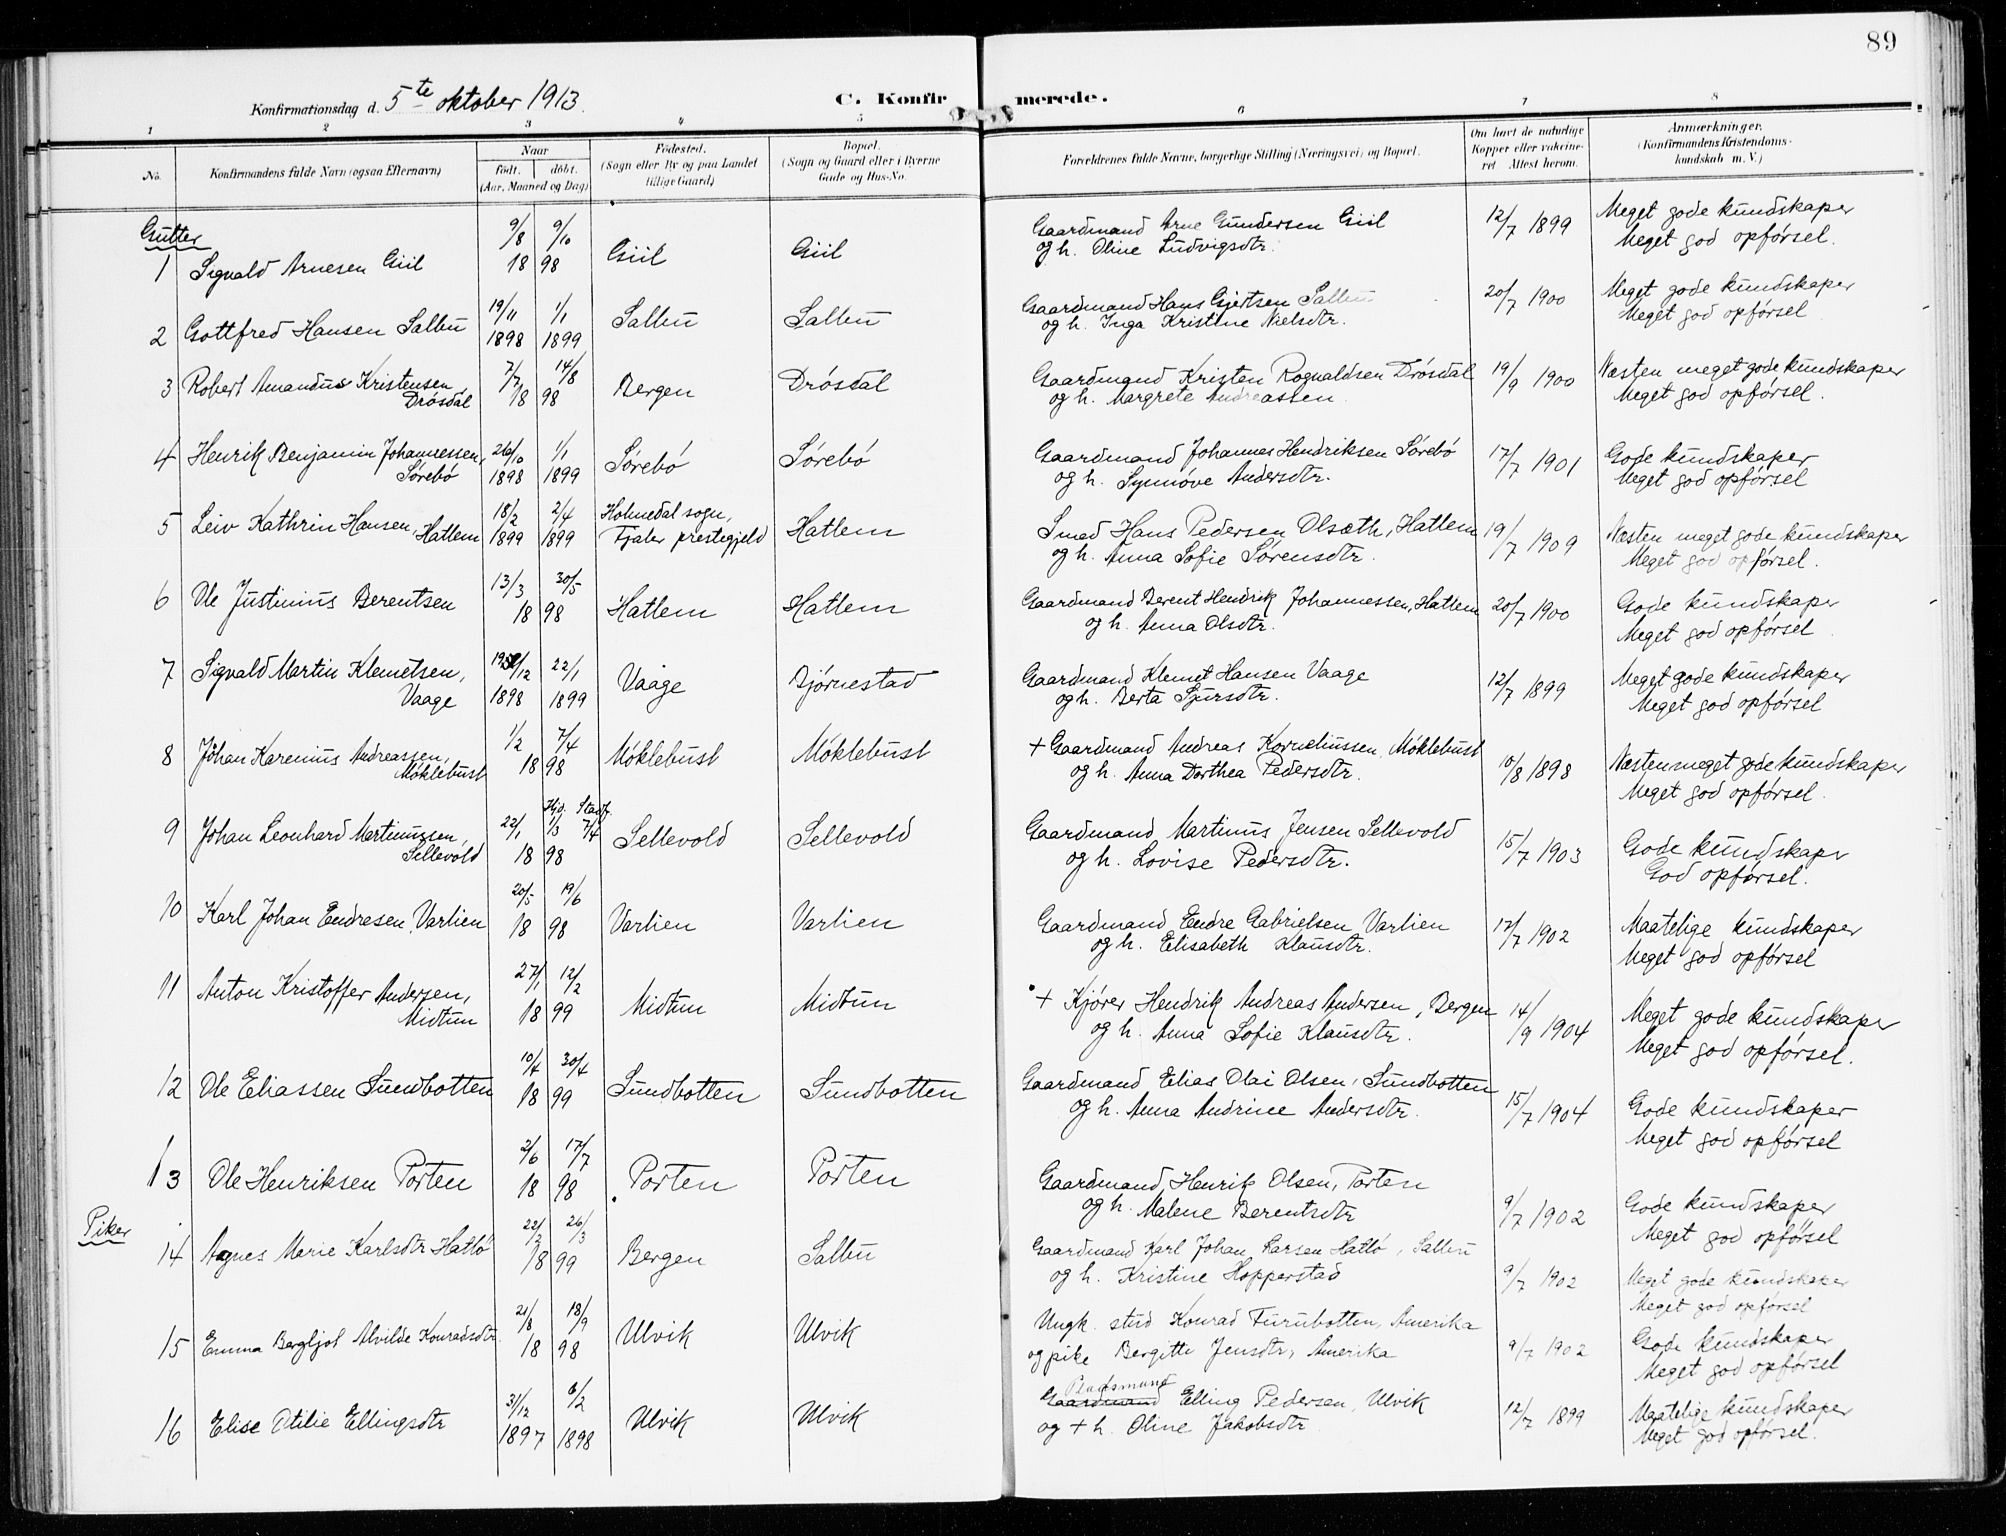 89
Konfirmationsdag d. 5te oktober 1913.
C. Konfirmerede.
1 2 3 4 5 6 7 8
No.
Konfirmandens fulde Navn (ogsaa Efternavn)
Naar
født. døbt.
(Aar, Maaned og Dag)
Fødested.
(Sogn eller By og paa Landet tillige Gaard)
Bopæl.
(Sogn og Gaard eller i Byerne Gade og Hus-No.
Forældrenes fulde Navne, borgerlige Stilling (Næringsvei) og Bopæl.
Om havt de naturlige Kopper eller vakcineret Attest herom.
Anmærkninger.
(Konfirmandens Kristendomskundskab m. V.)
Gutter
1 Sigvald Arnesen Giil 9/8 1898 9/10 Giil Giil Gaardmand Arne Gundersen Giil 12/7 1899 Meget gode kundskaper
og h. Oline Ludvigsdtr. Meget god opførsel.
2 Gottfred Hansen Salbu 19/11 1898 1/1 1899 Salbu Salbu Gaardmand Hans Gjertsen Salbu 20/7 1900 Meget gode kundskaper
og h. Inga Kristine Nielsdtr. Meget god opførsel
3 Robert Amandus Kristensen Drøsdal 7/7 1898 14/8 Bergen Drøsdal Gaardmand Kristen Rognaldsen Drøsdal 19/9 1900 Næsten meget gode kundskaper
og h. Margrete Andreassen. Meget god opførsel.
4 Henrik Benjamin Johannessen, Sørebø 26/10 1898 1/1 1899 Sørebø Sørebø Gaardmand Johannes Hendriksen Sørebø 17/7 1901 Gode kundskaper
og h. Synnøve Andersdtr. Meget god opførsel
5 Leiv Kathrin Hansen, Hatlem 18/2 1899 2/4 1899 Holmedal sogn, Fjaler prestegjeld Hatlem Smed Hans Pedersen Olsæth, Hatlem 19/7 1909 Næsten meget gode kundskaper
og h. Anna Sofie Sørensdtr. Meget god opførsel.
6 Ole Justinius Berentsen 13/3 1898 30/5 Hatlem Hatlem Gaardmand Berent Hendrik Johannessen, Hatlem 20/7 1900 Gode kundskaper
og h. Anna Olsdtr. Meget god opførsel
7 Sigvald Martin Klemetsen, Vaage 19/12 1898 22/1 1899 Vaage Bjørnestad Gaardmand Klemet Hansen Vaage 12/7 1899 Meget gode kundskaper
og h. Berta Sjursdtr. Meget god opførsel
8 Johan Karenius Andreassen, Møklebust 1/2 1898 7/4 Møklebust Møklebust + Gaardmand Andreas Korneliussen, Møklebust 10/8 1898 Næsten meget gode kundskaper
og h. Anna Dorthea Pedersdtr. Meget god opførsel.
9 Johan Leonhard Martinussen, Sellevold 22/1 1898 Hjd. 1/3 Stadf. 7/4 Sellevold Sellevold Gaardmand Martinus Jensen Sellevold 15/7 1903 Gode kundskaper
og h. Lovise Pedersdtr. God opførsel.
10 Karl Johan Endresen, Varlien 20/5 1898 19/6 Varlien Varlien Gaardmand Endre Gabrielsen, Varlien 17/7 1902 Maatelige kundskaper
og h. Elisabeth Klausdtr. Meget god opførsel
11 Anton Kristoffer Andersen, Midtun 27/1 1899 12/2 Midtun Midtun + Kjører Hendrik Andreas Andersen, Bergen 14/9 1904 Meget gode kundskaper
og h. Anna Sofie Klausdtr. Meget god opførsel.
12 Ole Eliassen Sundbotten 10/4 1899 30/4 Sundbotten Sundbotten Gaardmand Elias Olai Olsen, Sundbotten 15/7 1904 Gode kundskaper
og h. Anna Andrine Andersdtr. Meget god opførsel
13 Ole Henriksen Porten 2/6 1898 17/7 Porten Porten Gaardmand, Henrik Olsen, Porten 9/7 1902 Gode kundskaper
og h. Malene Berentsdtr Meget god opførsel
Piker
14 Agnes Marie Karlsdtr Hatlø 22/2 1899 26/3 Bergen Salbu Gaardmand Karl Johan Larsen Hatlø, Salbu 9/7 1902 Meget gode kundskaper
og h. Kristine Hopperstad Meget god opførsel
15 Emma Bergljot Alvilde Konradsdtr 21/8 1898 18/9 Ulvik Ulvik Ungk. stud Konrad Furubotten, Amerika 9/7 1902 Gode kundskaper
og pike Bergitte Jensdtr, Amerika Meget god opførsel
16 Elise Otilie Ellingsdtr 31/12 1897 6/2 1898 Ulvik Ulvik Gaardmand Pladsmand Elling Pedersen, Ulvik 12/7 1899 Maatelige kundskaper
og + h. Oline Jakobsdtr Meget god opførsel.